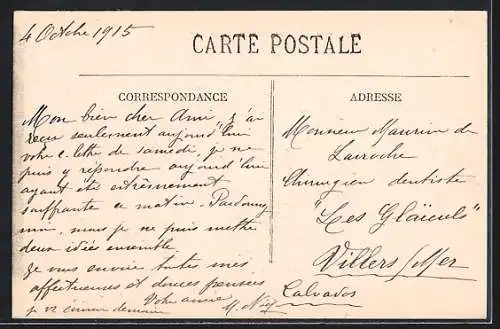 4 Octbre 1915
CARTE POSTALE
CORRESPONDANCE
Mon bien cher Ami, j'ai
reçu seulement aujourd'hui
votre c. lettre de samedi, je ne
puis y répondre aujourd'hui
ayant été extrêmement
souffrante ce matin. Pardonnez
moi, mais je ne puis mettre
deux idées ensemble
Je vous envoie toutes mes
affectueuses et douces pensées
je vs demain
Votre amie
M.
ADRESSE
Monsieur Maurin de
Larroche
Chirurgien dentiste
"Les Glaïeuls"
Villers s/Mer
Calvados